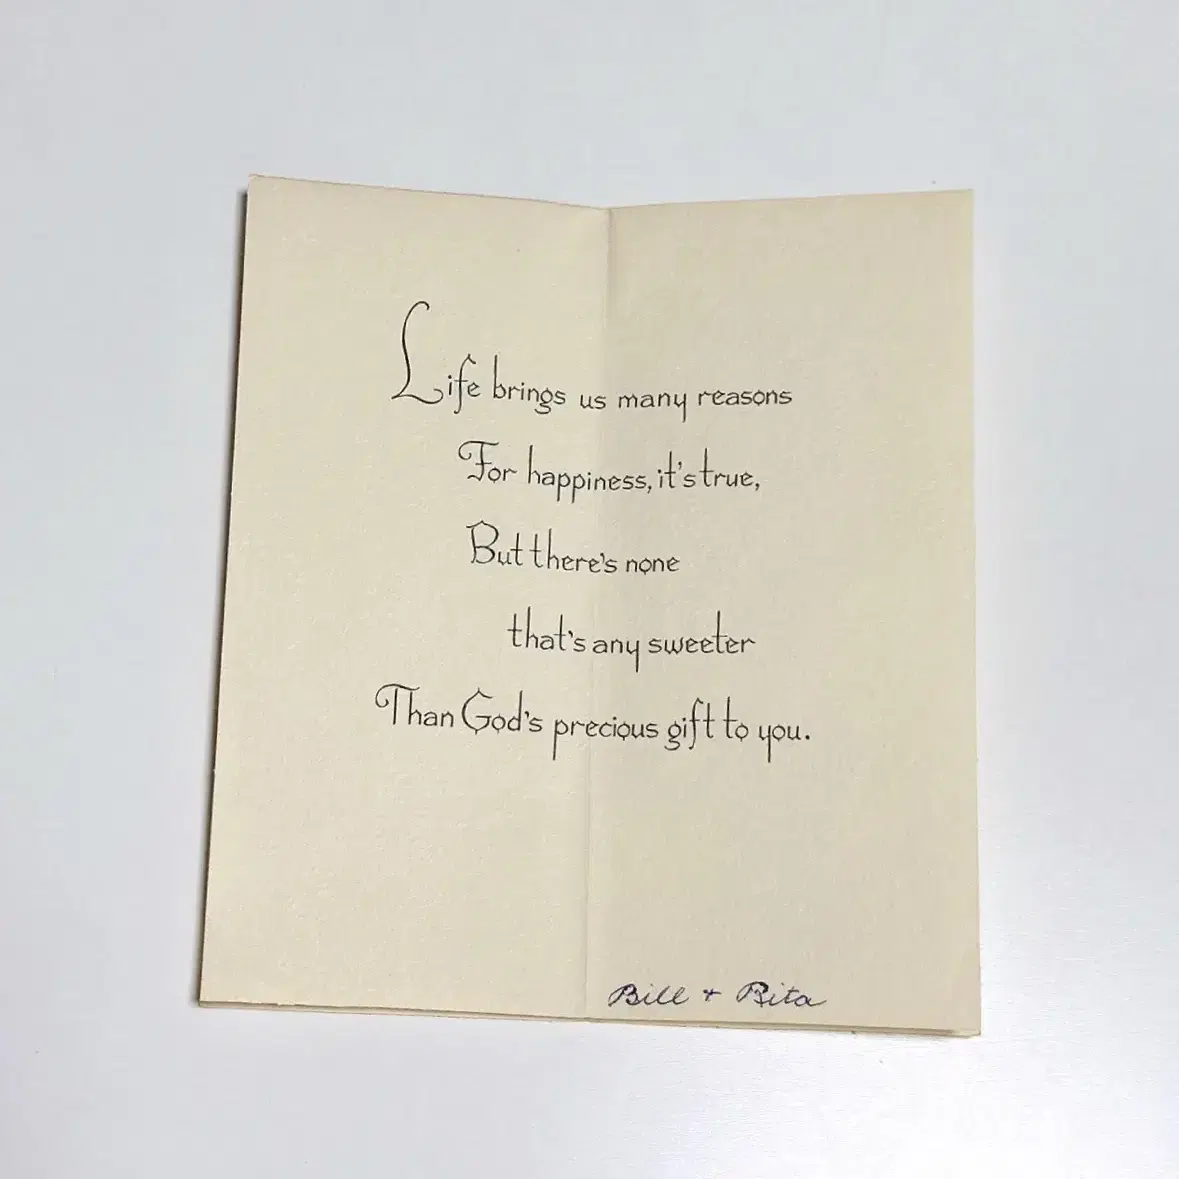 Life brings us many reasons
For happiness, it's true,
But there's none
that's any sweeter
Than God's precious gift to you.
Bill + Rita